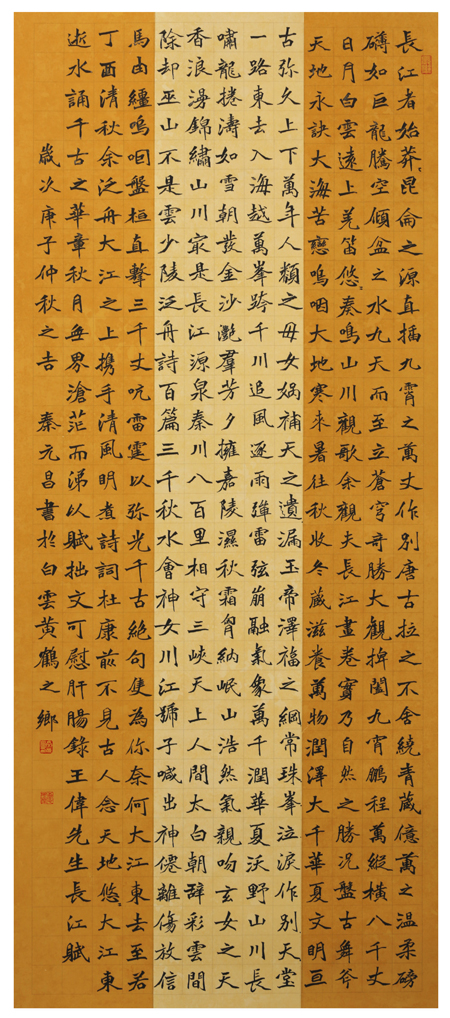 長江者始莽々昆侖之源直插九霄之萬丈作別唐古拉之不舍繞青藏億萬之温柔磅
礴如巨龍騰空傾盆之水九天而至立蒼穹奇勝大觀捭闔九宵鵬程萬縱橫八千丈
日月白雲遠上羌笛悠々奏鳴山川觀歌余觀夫長江畫卷實乃自然之勝況盤古舞斧
天地永訣大海苦戀嗚咽大地寒來暑往秋收冬藏滋養萬物潤澤大千華夏文明亘
古弥久上下萬年人類之毋女媧補天之遺漏玉帝澤福之綱常珠峯泣淚作別天堂
一路東去入海越萬峯跨千川追風逐雨彈雷弦崩融氣象萬千潤華夏沃野山川長
嘯龍捲濤如雪朝發金沙灩羣芳夕擁嘉陵濕秋霜胷納岷山浩然氣親吻玄女之天
香浪漫錦繡山川㝡是長江源泉秦川八百里相守三峽天上人間太白朝辭彩雲間
除却巫山不是雲少陵泛舟詩百篇三千秋水會神女川江號子喊出神僊離傷放信
馬由繮嗚咽盤桓直擊三千丈吭雷霆以弥光千古絶句隻為你奈何大江東去至若
丁酉清秋余泛舟大江之上携手清風明煮詩詞杜康前不見古人念天地悠々大江東
逝水誦千古之華章秋月無界滄茫而涕以賦拙文可慰肝腸錄王偉先生長江賦
歲次庚子仲秋之吉 秦元昌書於白雲黄鶴之鄉